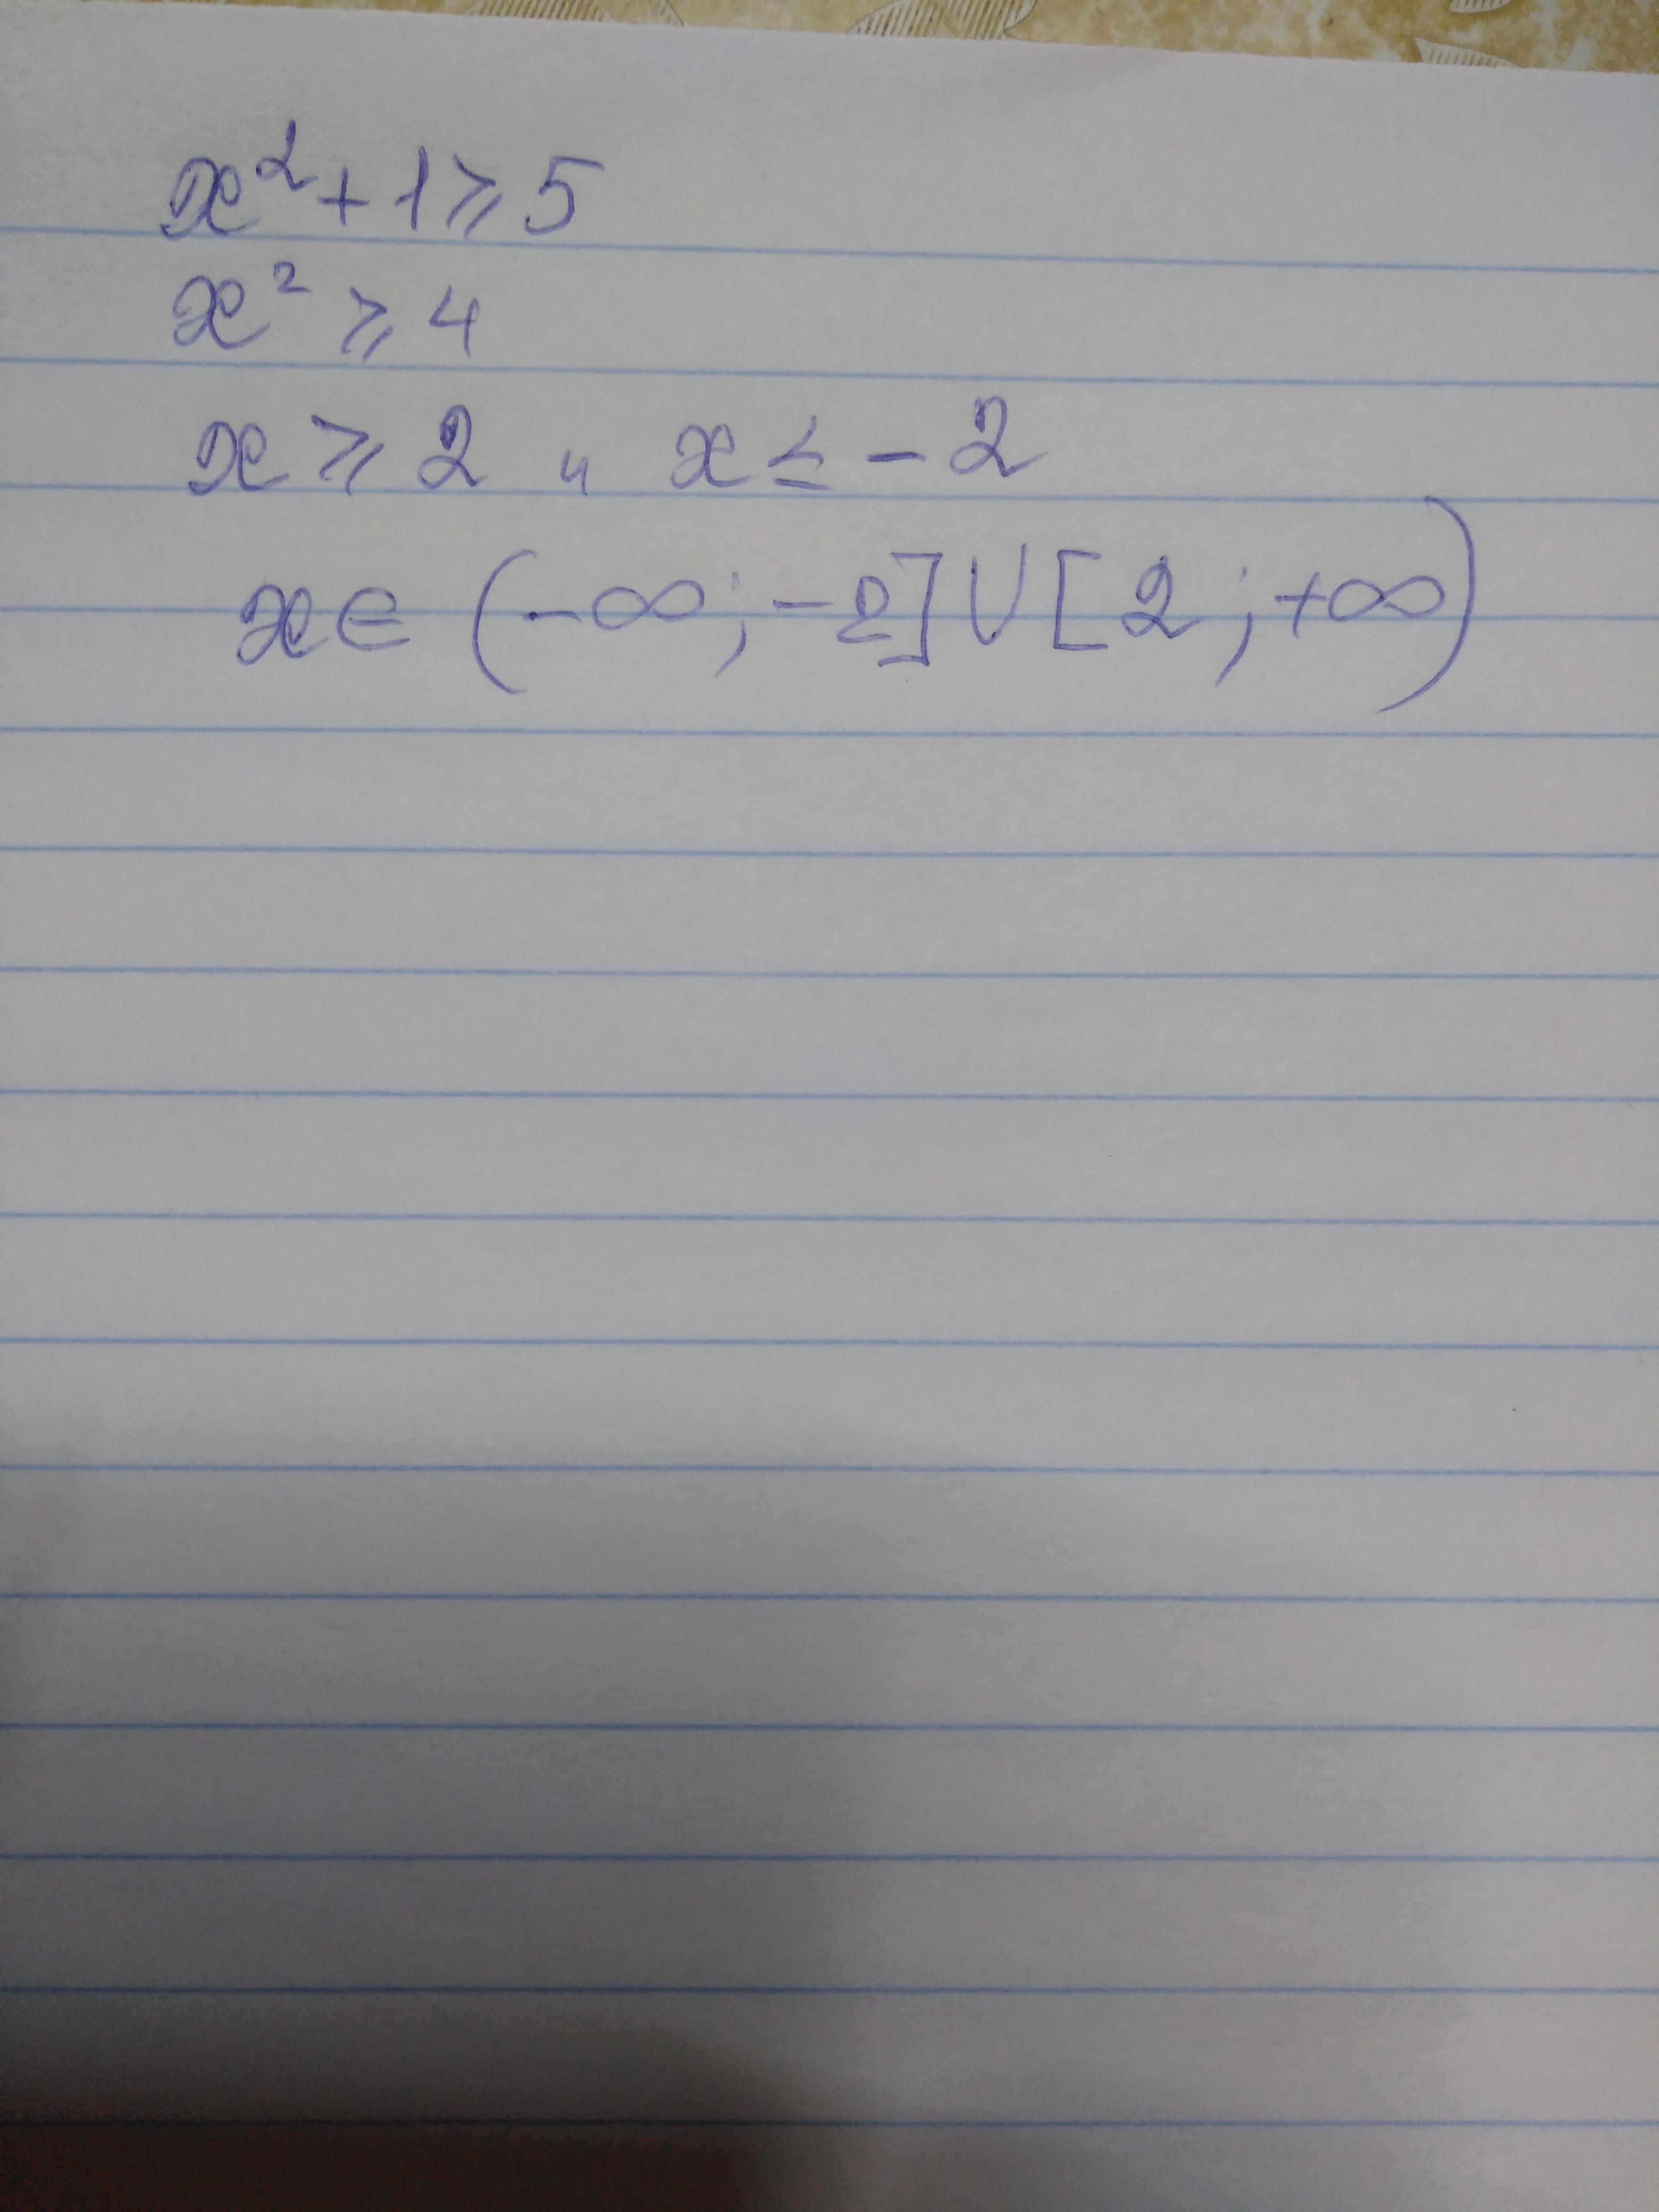 x² + 1 ⩾ 5
x² ⩾ 4
x ⩾ 2 и x ≤ - 2
x ∈ (-∞; -2] ∪ [2; +∞)